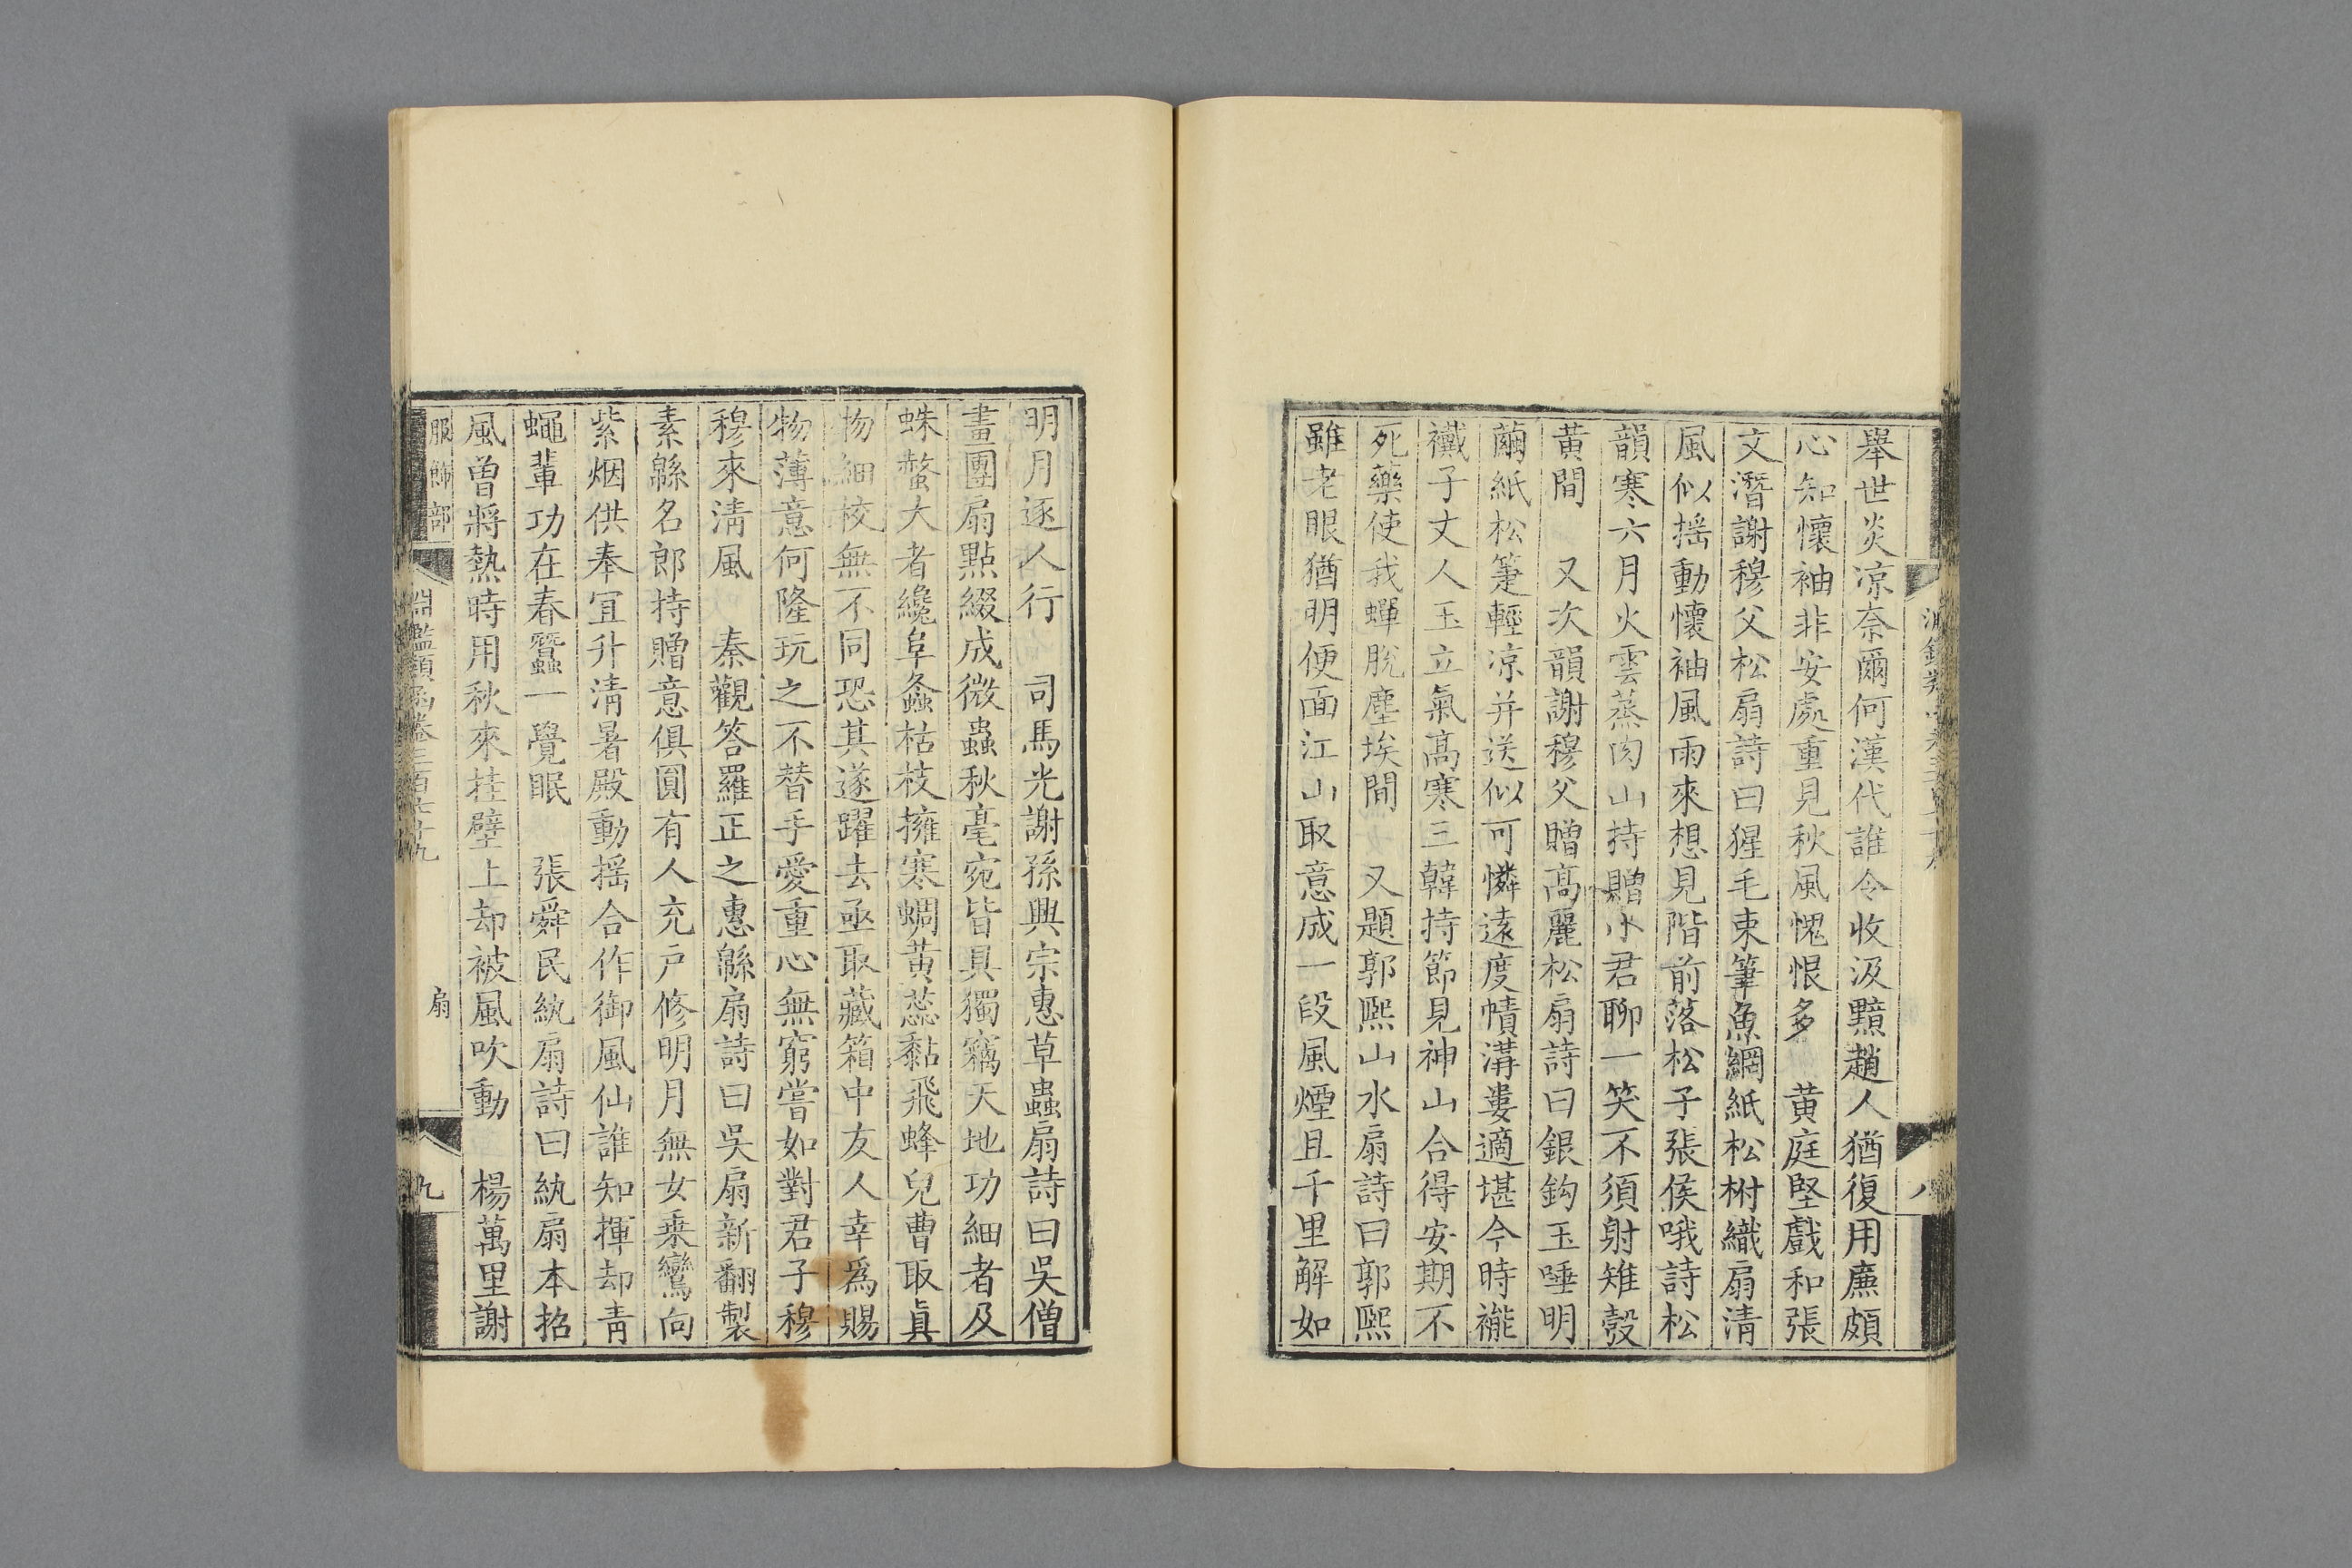 舉世炎涼奈爾何漢代誰令收汲黯趙人猶復用廉頗
心知懷袖非安處重見秋風愧恨多　黃庭堅戲和張
文潛謝穆父松扇詩曰猩毛束筆魚網紙松柎織扇清
風似摇動懷袖風雨來想見階前落松子張侯哦詩松
韻寒六月火雲蒸肉山持贈小君聊一笑不須射雉彀
黃間　又次韻謝穆父贈髙麗松扇詩曰銀鈎玉唾明
繭紙松箑輕涼并送似可憐遠度幘溝婁適堪今時褦
襶子丈人玉立氣髙寒三韓持節見神山合得安期不
死藥使我蟬脫塵埃間　又題郭熈山水扇詩曰郭熈
雖老眼猶明便面江山取意成一段風煙且千里解如
明月逐人行　司馬光謝孫興宗惠草蟲扇詩曰吳僧
畫團扇點綴成微蟲秋毫宛皆具獨竊天地功細者及
蛛螯大者纔阜螽枯枝擁寒蜩黃蕊黏飛蜂兒曹取眞
物細校無不同恐其遂躍去亟取藏箱中友人幸爲賜
物薄意何隆玩之不替手愛重心無窮嘗如對君子穆
穆來清風　秦觀答羅正之惠緜扇詩曰吳扇新翻製
素緜名郎持贈意俱圓有人充戸修明月無女乘鸞向
紫烟供奉宜升清暑殿動摇合作御風仙誰知揮却靑
蠅輩功在春蠶一覺眠　張舜民紈扇詩曰紈扇本招
風曾將熱時用秋來挂壁上却被風吹動　楊萬里謝
服飾部
淵鑑類函卷三百七十九
扇
九